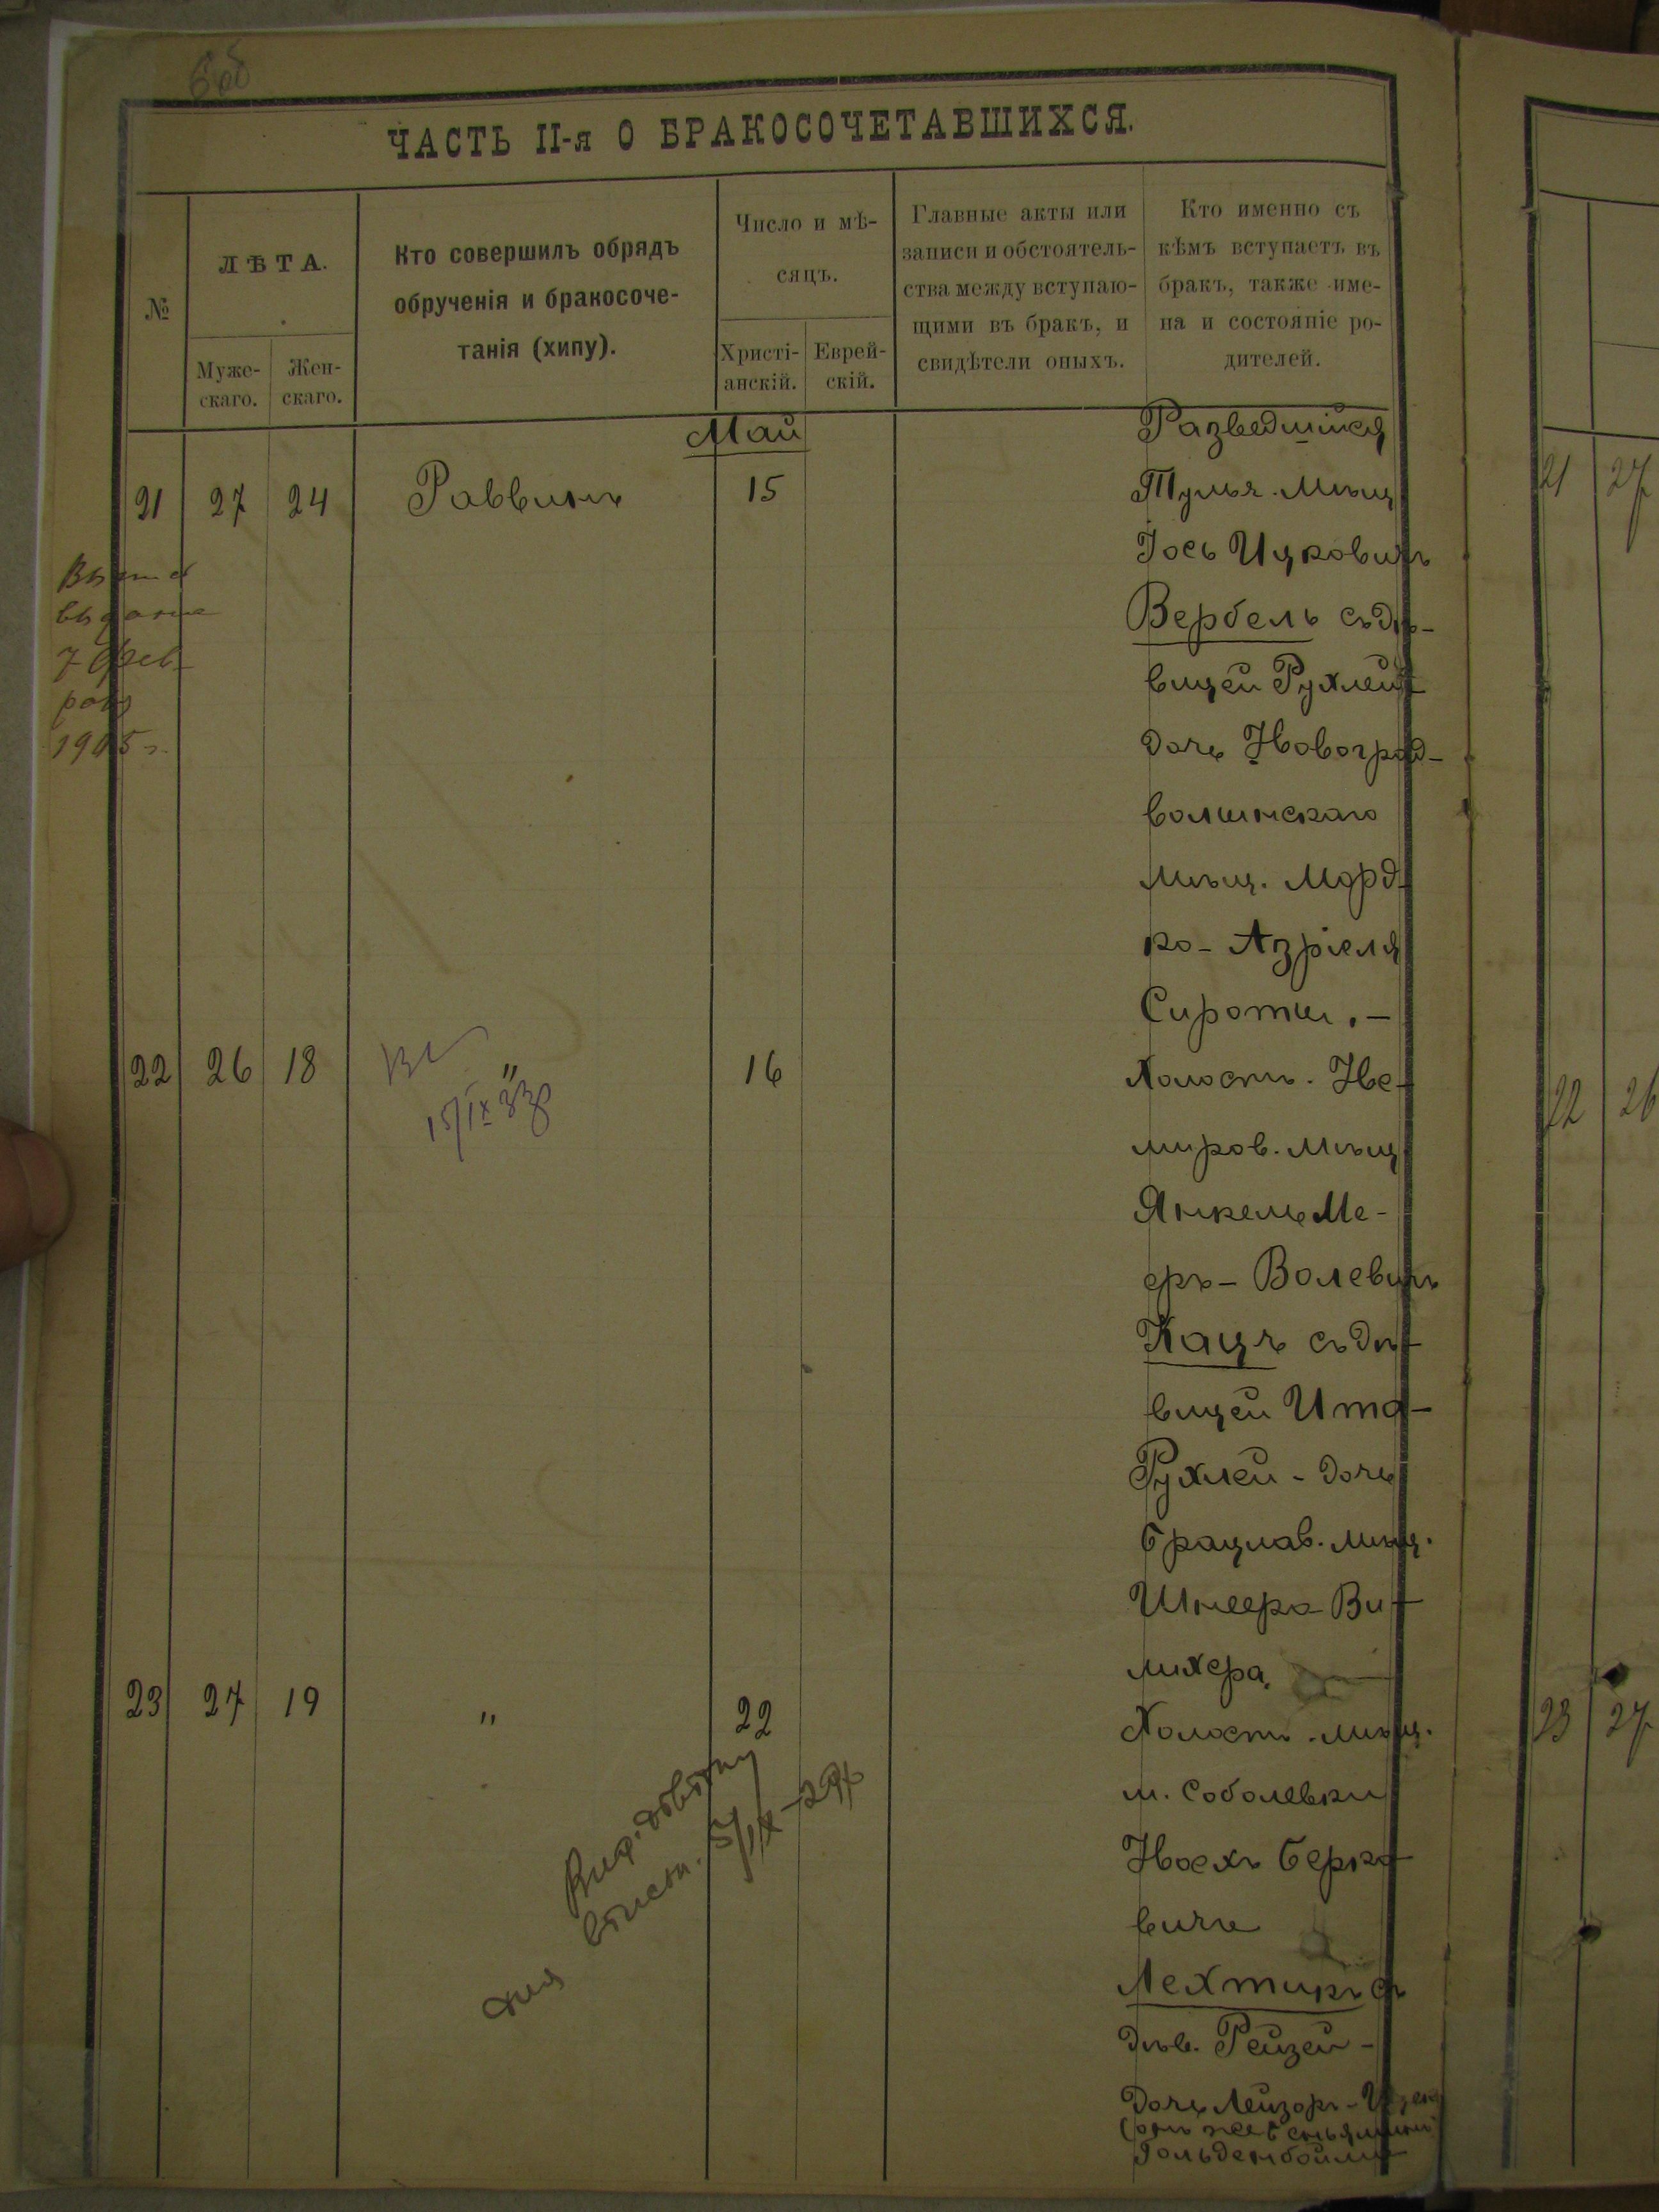 6об
ЧАСТЬ II-я О БРАКОСОЧЕТАВШИХСЯ.
№
ЛѢТА.
Муже-
скаго.
Жен-
скаго.
Кто совершилъ обрядъ
обрученія и бракосоче-
танія (хипу).
Число и мѣ-
сяцъ.
Христі-
анскій.
Еврей-
скій.
Главные акты или
записи и обстоятель-
ства между вступаю-
щими въ бракъ, и
свидѣтели оныхъ.
Кто именно съ
кѣмъ вступаетъ въ
бракъ, также име-
на и состояніе ро-
дителей.
Май
21 27 24 Раввинъ 15
Разведшійся
Тульч. Мѣщ
Іось Ицковичъ
Вербель съ дѣ-
вицей Рухлей
дочь Новоград-
волынскаго
мѣщ. Морд-
ко-Азріеля
Сироты.-
выдана
7 фев-
1905 г.
22 26 18 " 16
15/IX 33р
Холостъ. Не-
миров. мѣщ
Янкель Ме-
еръ-Волевичъ
Кацъ съ дѣ-
вицей Ита-
Рухлей - дочь
Брацлав. мѣщ.
Шнеера Ви-
лихера
23 27 19 " 22
Холостъ. мѣщ.
м. Соболевки
Ноехъ Берко-
вичъ
Лехтикъ съ
дѣв. Рейзей-
дочь Лейзоръ-
(онъ же
Гольденбойма
21 27
22 26
23 27